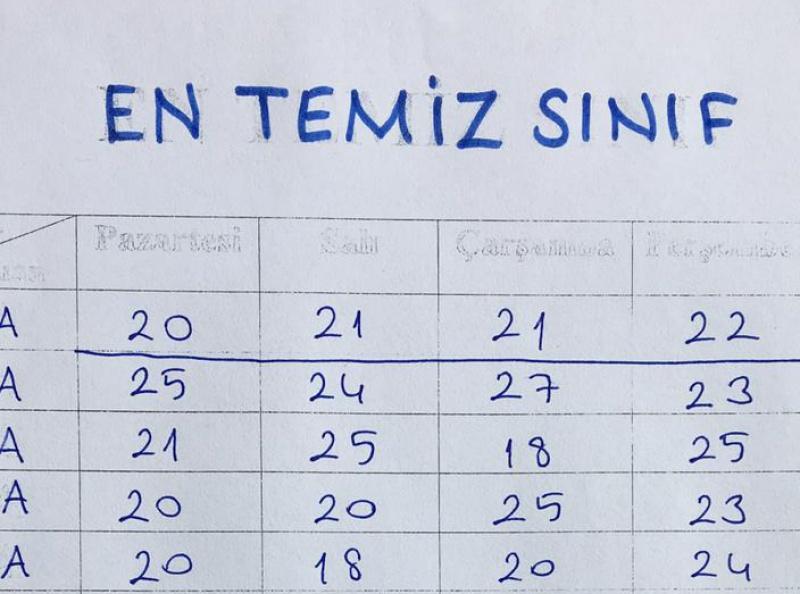 EN TEMİZ SINIF
Pazartesi Salı Çarşamba Perşembe
A 20 21 21 22
A 25 24 27 23
A 21 25 18 25
A 20 20 25 23
A 20 18 20 24